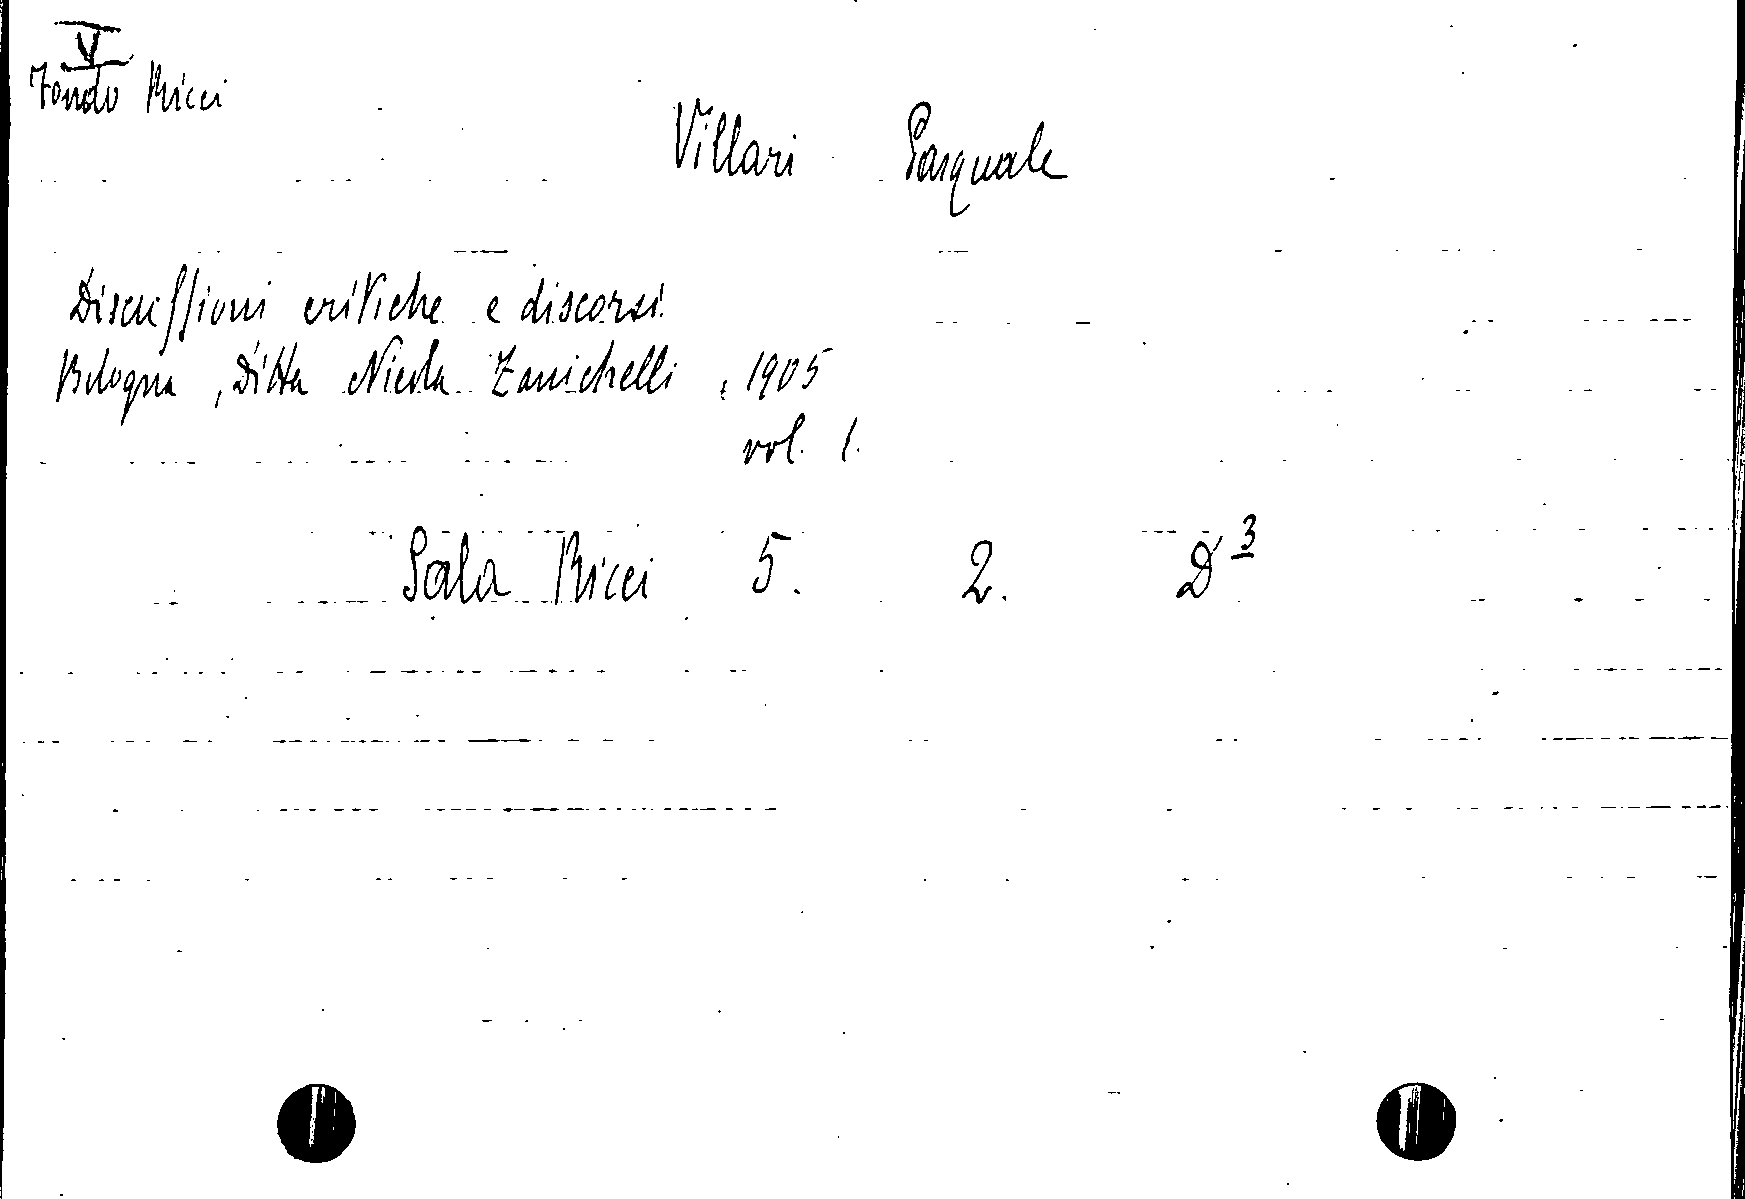 V
Fondo Ricci
Villari Pasquale
Discussioni critiche e discorsi.
Bologna, Ditta Nicola Zanichelli, 1905
vol. 1.
Sala Ricci 5. 2. D 3